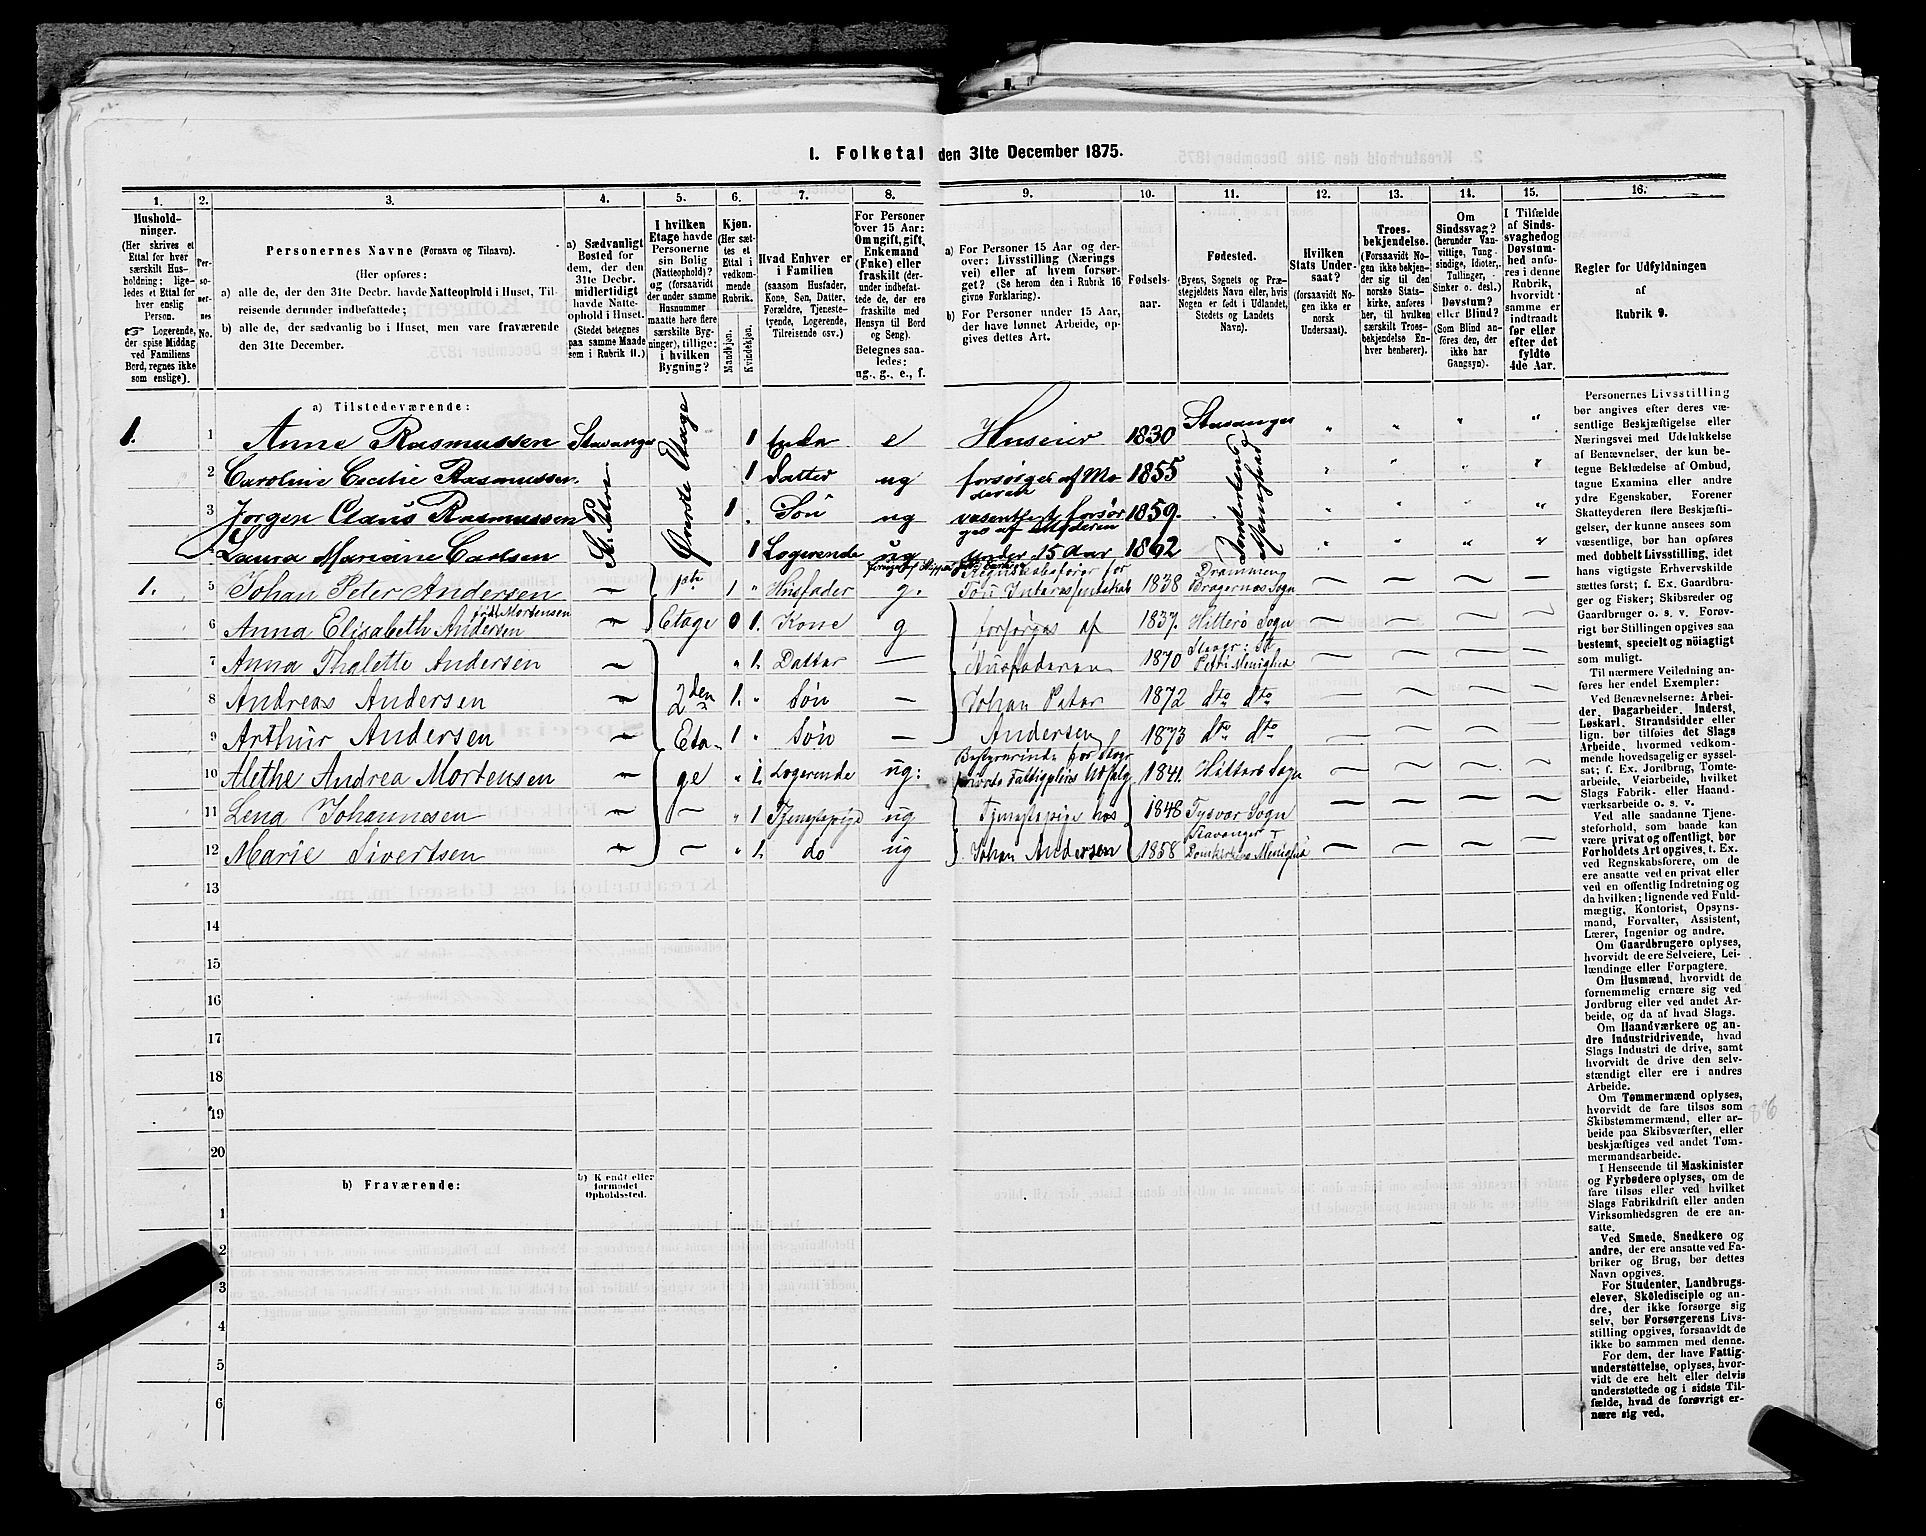 1. Folketal den 31te December 1875.
1. 2. 3. 4. 5. 6. 7. 8. 9. 10. 11. 12. 13. 14. 15. 16.
Hushold-
ninger.
(Her skrives et
Ettal for hver
særskilt Hus-
holdning; lige-
ledes et Ettal for
hver enslig
Person.
☞ Logerende,
der spise Middag
ved Familiens
Bord, regnes ikke
som enslige.)
Per-
so-
ner-
nes
No.
Personernes Navne (Fornavn og Tilnavn).
(Her opføres:
a) alle de, der den 31te Decbr. havde Natteophold i Huset, Til-
reisende derunder indbefattede;
b) alle de, der sædvanlig bo i Huset, men vare fraværende
den 31te December.
a) Sædvanligt
Bosted for
dem, der den
31te Decbr.
midlertidigt
havde Natte-
ophold i Huset.
(Stedet betegnes
paa samme Maade
som i Rubrik 11.)
I hvilken
Etage havde
Personerne
sin Bolig
(Natteophold)?
og (forsaavidt
der under samme
Husnummer
maatte høre flere
særskilte Byg-
ninger), tillige:
i hvilken
Bygning?
Kjøn.
(Her sæt-
tes et
Ettal i
vedkom-
mende
Rubrik.
Mandkjøn.
Kvindekjøn.
Hvad Enhver er
i Familien
(saasom Husfader,
Kone, Søn, Datter,
Forældre, Tjeneste-
tyende, Logerende,
Tilreisende osv.)
For Personer
over 15 Aar:
Om ugift, gift,
Enkemand
(Enke) eller
fraskilt (der-
under indbefat-
tede de, der ere
fraskilte med
Hensyn til Bord
og Seng).
Betegnes saa-
ledes:
ug., g., e., f.
a) For Personer 15 Aar og der-
over: Livsstilling (Nærings
vei) eller af hvem forsør-
get? (Se herom den i Rubrik 16
givne Forklaring).
b) For Personer under 15 Aar,
der have lønnet Arbeide, op-
gives dettes Art.
Fødsels-
aar.
Fødested.
(Byens, Sognets og Præ-
stegjeldets Navn eller, hvis
Nogen er født i Udlandet,
Stedets og Landets
Navn).
Hvilken
Stats Under-
saat?
(forsaavidt No-
gen ikke er
norsk
Undersaat).
Troes-
bekjendelse.
(Forsaavidt No-
gen ikke bekjen-
der sig til den
norske Stats-
kirke, anføres
her, til hvilken
særskilt Troes-
bekjendelse En-
hver henhører).
Om
Sindssvag?
(herunder Van-
vittige, Tung-
sindige, Idioter,
Tullinger,
Sinker o. desl.)
Døvstum?
eller Blind?
(Som Blind an-
føres den, der
ikke har
Gangsyn).
I Tilfælde
af Sinds-
svaghed og
Døvstum-
hed anfø-
res i denne
Rubrik,
hvorvidt
samme er
indtraadt
før eller
efter det
fyldte
4de Aar.
Regler for Udfyldningen
af
Rubrik 9.
a) Tilstedeværende:
1. 1 Anne Rasmussen Stavanger St. Petri Øverste Etage 1 Enke e Huseier 1830 Stavanger
2 Caroline Cecilie Rasmussen 1 Datter ug forsørges af Mo-
deren 1855
3 Jørgen Claus Rasmussen 1 Søn ug væsentligt forsør-
ges af Moderen 1859. Menighed
Laura Mariane Carlsen 1 Logerende ug under 15 Aar 1862
1. 5 Johan Peter Andersen 1ste 1 " Husfader g. Regnskabsfører for
1838 Drammen
Bragernes Sogn
født Mortensen
6 Anna Elisabeth Andersen Etage 0 1. Kone g forsørges af 1837. Hitterø Sogn
7 Anna Thalette Andersen " 1. Datter — Husfaderen 1870 St
Petri Menighed
8 Andreas Andersen 2den 1. " Søn — Johan Peter 1872 dto dto
9 Arthur Andersen Eta- 1 " Søn — Andersen 1873 dto dto
10 Alethe Andrea Mortensen ge " 1. Logerende ug: Bestyrerinde for
Udsalg 1841. Hitterø Sogn
11 Lena Johannesen " 1 Tjenestepige ug Tjenestepige hos 1848 Tysvær Sogn
12 Marie Sivertsen " 1. do ug Johan Andersen 1858 Stavanger
Domkirkens Menighed
13
14
15
16
17
18
19
20
b) Fraværende:
b) Kjendt eller
formodet
Opholdssted.
1
2
3
4
5
6
Personernes Livsstilling
bør angives efter deres væ-
sentlige Beskjæftigelse eller
Næringsvei med Udelukkelse
af Benævnelser, der kun be-
tegne Beklædelse af Ombud,
tagne Examina eller andre
ydre Egenskaber. Forener
Skatteyderen flere Beskjæfti-
gelser, der kunne ansees som
væsentlige, bør han opføres
med dobbelt Livsstilling, idet
hans vigtigste Erhvervskilde
sættes først; f. Ex. Gaardbru-
ger og Fisker; Skibsreder og
Gaardbruger o. s. v. Forøv-
rigt bør Stillingen opgives saa
bestemt, specielt og nøiagtigt
som muligt.
Til nærmere Veiledning an-
føres her endel Exempler:
Ved Benævnelserne: Arbei-
der, Dagarbeider, Inderst,
Løskarl, Strandsidder eller
lign. bør tilføies det Slags
Arbeide, hvormed vedkom-
mende hovedsagelig er syssel-
sat; f. Ex. Jordbrug, Tomte-
arbeide, Veiarbeide, hvilket
Slags Fabrik- eller Haand-
værksarbeide o. s. v.
Ved alle saadanne Tjene-
steforhold, som baade kan
være privat og offentligt, bør
Forholdets Art opgives, t. Ex.
ved Regnskabsførere, om de
ere ansatte ved en privat eller
ved en offentlig Indretning og
da hvilken; lignende ved Fuld-
mægtig, Kontorist, Opsyns-
mand, Forvalter, Assistent,
Lærer, Ingeniør og andre.
Om Gaardbrugere oplyses,
hvorvidt de ere Selveiere, Lei-
lændinge eller Forpagtere.
Om Husmænd, hvorvidt de
fornemmelig ernære sig ved
Jordbrug eller ved andet Ar-
beide, og da af hvad Slags.
Om Haandværkere og an-
dre Industridrivende, hvad
Slags Industri de drive, samt
hvorvidt de drive den selv-
stændigt eller ere i andres
Arbeide.
Om Tømmermænd oplyses,
hvorvidt de fare tilsøs som
Skibstømmermænd, eller ar-
beide paa Skibsværfter, eller
beskjæftiges ved andet Tøm-
mermandsarbeide.
I Henseende til Maskinister
og Fyrbødere oplyses, om de
fare tilsøs eller ved hvilket
Slags Fabrikdrift eller anden
Virksomhedsgren de ere an-
satte.
Ved Smede, Snedkere og
andre, der ere ansatte ved Fa-
briker og Brug, bør dettes
Navn opgives.
For Studenter, Landbrugs-
elever, Skoledisciple og an-
dre, der ikke forsørge sig
selv, bør Forsørgerens Livs-
stilling opgives, forsaavidt de
ikke bo sammen med denne.
For dem, der have Fattig-
understøttelse, oplyses, hvor-
vidt de ere helt eller delvis
understøttede og i sidste Til-
fælde, hvad de forøvrigt er-
nære sig ved.